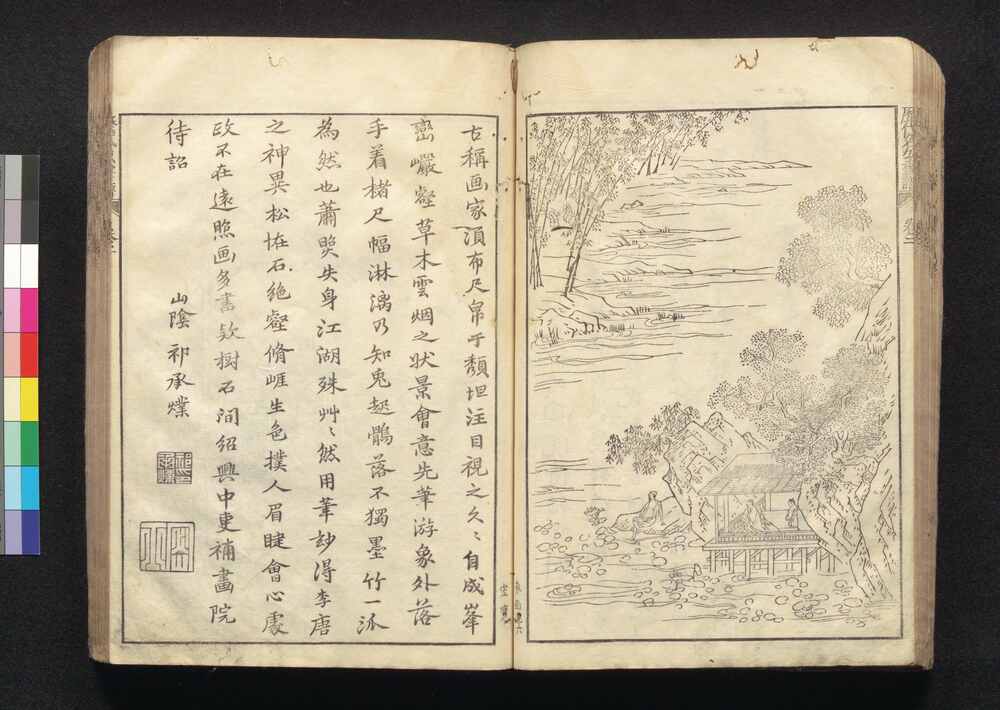 古稱画家須布尺帛于頽坦注目視之久〻自成峯
巒巖壑草木雲烟之状景會意先筆游象外落
手着楮尺幅淋漓乃知兎起鶻落不獨墨竹一派
為然也蕭照失身江湖殊艸〻然用筆妙得李唐
之神異松恠石絶壑脩崕生色撲人眉睫會心處
政不在遠照画多書欵樹石间紹興中更補畫院
待詔
山陰祁承㸁